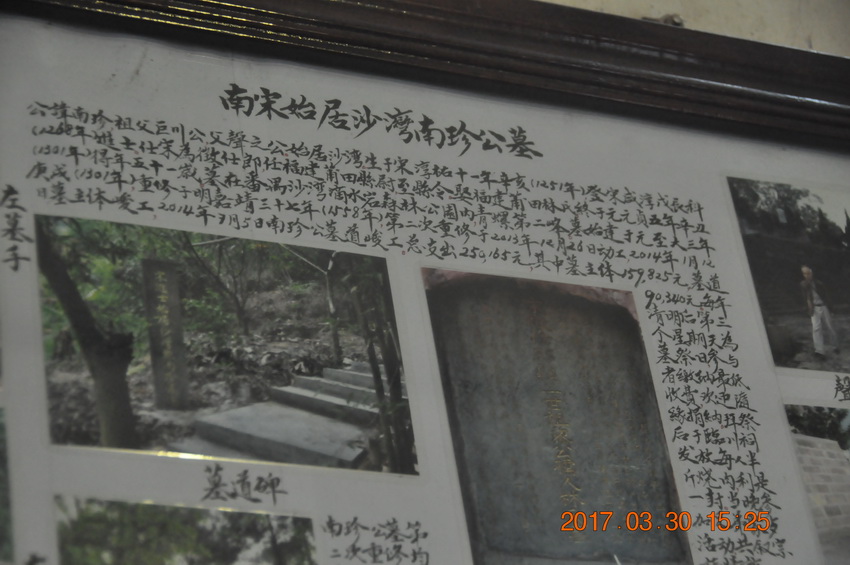 南宋始居沙灣南珍公墓
公諱南珍祖父巨川公父聲之公始居沙灣生于宋淳祐十一年辛亥(1251年)登宋咸淳戊辰科
(1268年)進士仕宋為徵仕郎任福建莆田縣尉至縣令娶福建莆田林氏終于元元貞五年辛丑
(1301年)得年五十一歲墓在番禺沙灣滴水岩森林公園內青螺第二峯墓始建于元至大三年
庚戌(1301年)重修于明嘉靖三十七年(1558年)第二次重修于2013年12月26日动工2014年1月12
日墓主体竣工,2014年3月5日南珍公墓道竣工,总支出250,165元,其中墓主体159,825元,墓道
90,340元每年
清明后第三
个星期天為
墓祭日参与
者繳納最低
收費欢迎随
緣捐納拜祭
后于臨川祠
发放每人半
斤燒肉利是
一封
活动共叙宗
左墓手
墓道碑
聲
南珍公墓第
二次重修均
2017.03.30 15:25